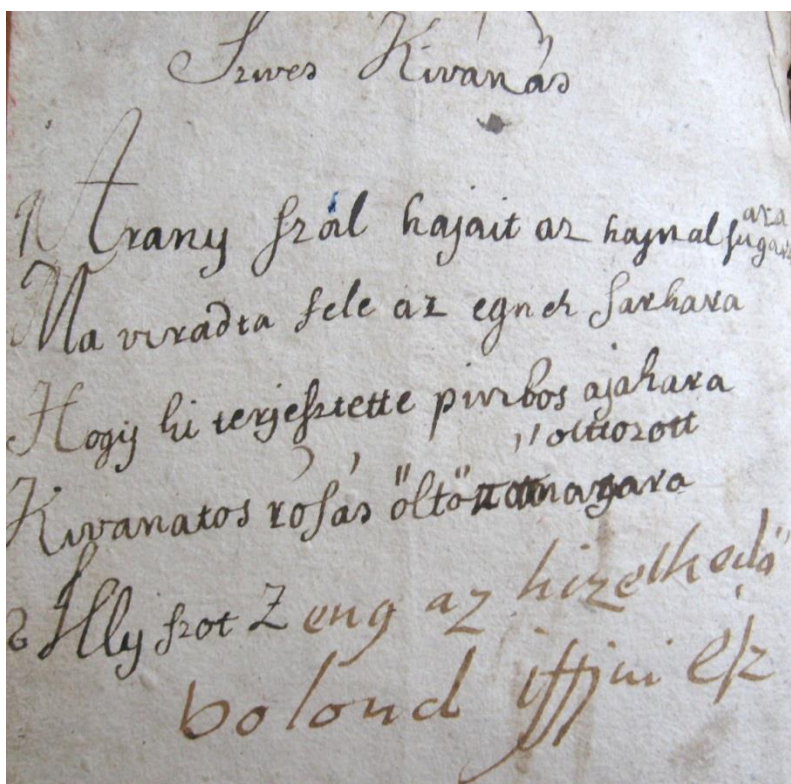 Szives Kivánás
1 Arany szál hajait az hajnal sugara
Ma viradta fele az egnek sarkara
Hogy ki terjesztette pirbos ajakara
Kivánatos rósás öltö magara
öltözött
2 Illy szot Zeng az hizelkedö
bolond iffjui Esz